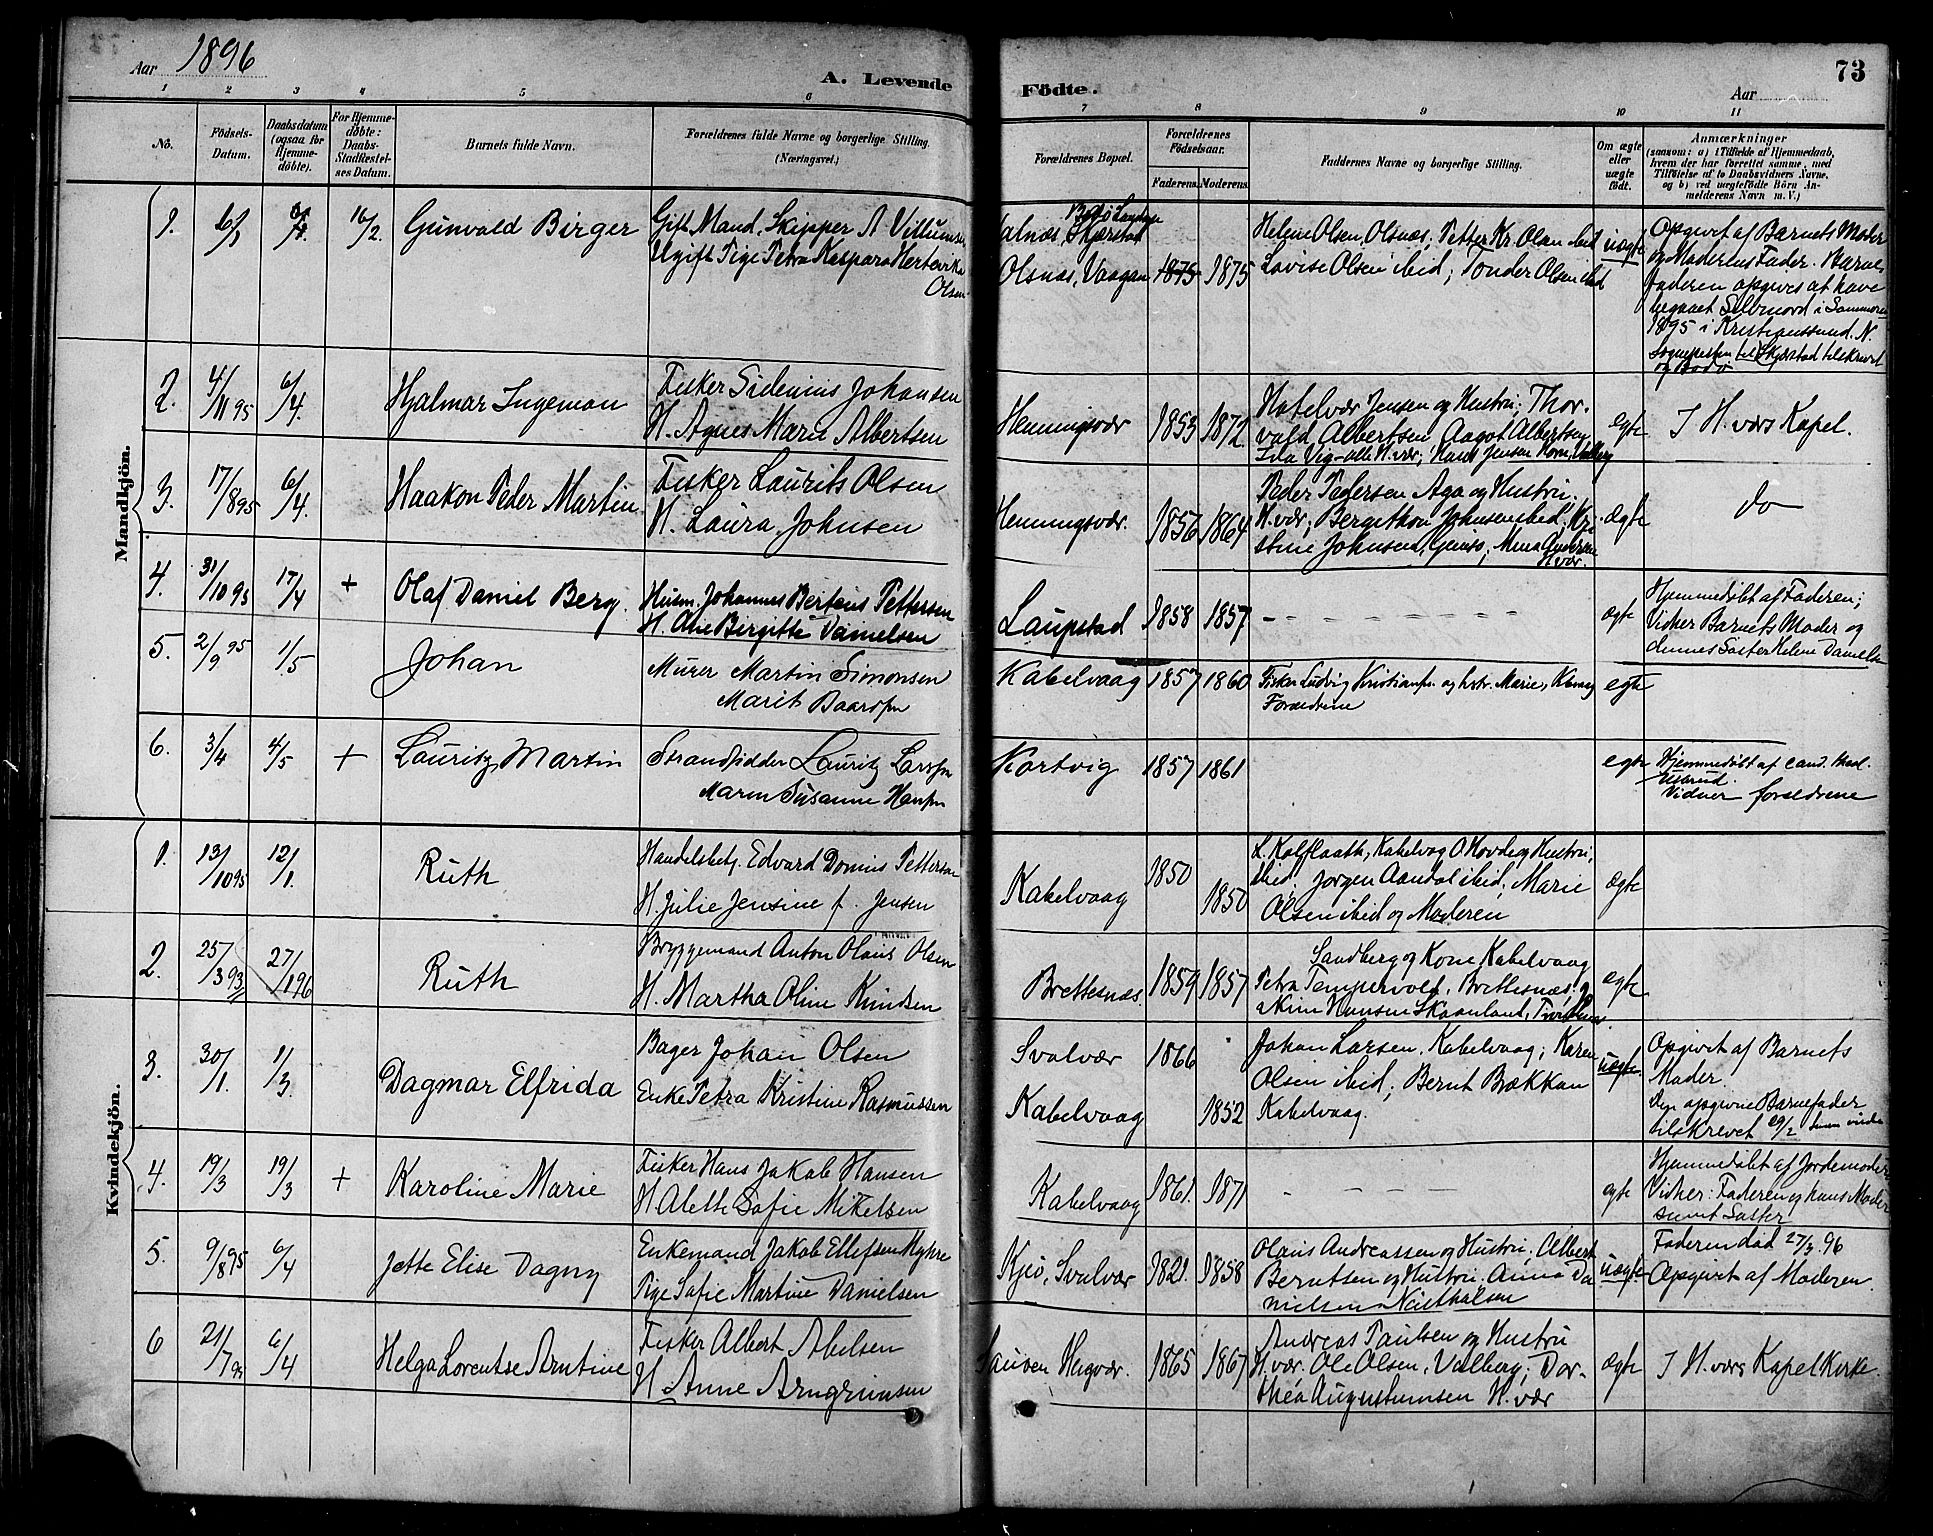 Aar 1896
A. Levende
Fødte.
73
Aar
1 2 3 4 5 6 7 8 9 10 11
No.
Fødsels-
Datum.
Daabsdatum
(ogsaa for
Hjemme-
døbte).
For Hjemme-
døbte:
Daabs-
Stadfæstel-
ses Datum.
Barnets fulde Navn.
Forældrenes fulde Navne og borgerlige Stilling.
(Næringsvei.)
Forældrenes Bopæl.
Forældrenes
Fødselsaar.
Faderens. Moderens.
Faddernes Navne og borgerlige Stilling.
Om ægte
eller
uægte
født.
Anmærkninger
(saasom: a) i Tilfælde af Hjemmedaab,
hvem der har forrettet samme, med
Tilføielse af to Daabsvidners Navne,
og b) ved uægtefødte Børn An-
melderens Navn m. V.)
Mandkjön.
1. 6/1 16/2. Gunvald Birger
Gift Mand, Skipper A
Ugift Pige Petra Kaspara
Olsen
Skjerstad
Olsnæs, Vaagan 1875 1875
Helene Olsen, Olsnæs; Petter Kr. Olsen ibid
Lovise Olsen ibid; Tonder Olsen ibid
uægte
Opgivet af Barnets Moder
og Moderens Fader. Barne-
faderen opgives at have
begaaet Selvmord i Sommeren
1895 i Kristianssund. N.
Sognepresten til Skjerstad tilskrevet
og Bodø
2. 4/11 95 6/4. Hjalmar Ingeman
Fisker Sidenius Johansen
H. Agnes Marie Albertsen
Henningsvær 1853 1872
Jensen og Hustru; Thor-
vald Albertsen, Aagot Albertsen
ægte
I H.værs Kapel.
3. 17/8 95 6/4. Haakon Peder Martin
Fisker Laurits Olsen
H. Laura Johnsen
Henningsvær. 1856 1864
Peder Pedersen Aga og Hustru.
H.vær; Bergithon Johnsen ibid; Kri-
stine Johnsen, Gimsø;
H.vær.
ægte
do
4. 31/10 95 17/4 + Olaf Daniel Berg.
Husm. Johannes Berteus Pettersen
H. Ane Birgitte Danielsen
Laupstad 1858 1857 - - - - - - -
ægte
Hjemmedøbt af Faderen;
Vidner Barnets Moder og
dennes Søster Helene Danielsen
5. 2/9 95 1/5 Johan
Murer Martin Simonsen
Marit Baardsen
Kabelvaag 1857 1860
Fisker Ludvig Kristiansen og hstr. Marie,
Forældrene
egte
6. 3/4 4/5 + Lauritz Martin
Strandsidder Lauritz Larsen
Maren Susanne Hansen
Kortvig 1857 1861
egte
Hjemmedøbt af cand. med.
Vidner forældrene
Kvindekjön.
1. 13/10 95 12/1. Ruth
Handelsbetj. Edvard Petterson
H. Julie Jensine f. Jensen
Kabelvaag 1850 1850
L. Kalflaath, Kabelvag O Hovde og Hustru,
ibid. Jørgen Aandal ibid; Marie
Olsen ibid og Moderen
ægte
2. 25/3 93 27/1 96 Ruth
Bryggemand Anton Olaus Olsen
H. Martha Oline Knudsen
Brettesnæs. 1859 1857
Sandberg og Kone Kabelvaag
Petra Tempervold, Brettesnæs;
Hansen Skaanland,
egte
3. 30/1. 1/3. Dagmar Elfrida
Bager Johan Olsen
Enke Petra Kristine Rasmussen
Svolvær 1866
Kabelvaag 1852
Johan Larsen, Kabelvaag; Karen
Olsen ibid; Bernt Bækkan
Kabelvaag.
uægte.
Opgivet af Barnets
Moder.
Den opgivne Barnefader
tilskrevet 29/2
4. 19/3 19/3 + Karoline Marie
Fisker Hans Jakob Hansen
H. Alette Sofie Mikelsen
Kabelvaag 1861. 1871 - - - -
egte
Hjemmedøbt af Jordemoder
Vidner: Faderen og hans Moder
samt Søster
5. 9/8 95 6/4 Jette Elise Dagny
Enkemand Jakob Ellefsen Myhre
Pige Sofie Martine Danielsen
Kjeø, Svolvær 1821. 1858
Olaus Andreassen og Hustru; Albert
Berntsen og Hustru. Anna Da-
nielsen
uægte
Faderen død 27/3 96
Opgivet af Moderen
6 21/7 95 6/4 Helga Lorentse Arntine
Fisker Albert Abelsen
H. Anne Arngrimsen
Sauøen Hegvær. 1865 1867
Andreas Paulsen og Hustru
H.vær. Ole Olsen, Valberg; Dor-
thea Augustinusen H.vær
ægte
I H.værs Kapel Kirke.